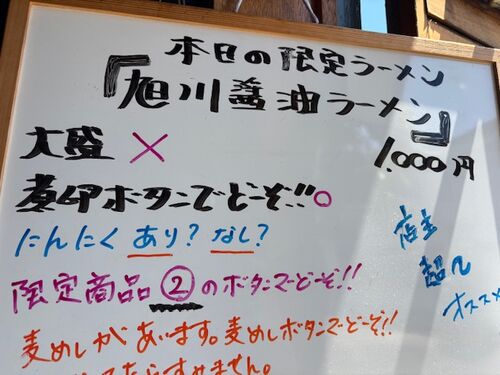 本日の限定ラーメン
『旭川醤油ラーメン』
大盛 × 1.000円
煮卵ボタンでどーぞ!!○
にんにく あり? なし?
店主
超凡
オススメ
限定商品②のボタンでどーぞ!!
麦めしがあいます。麦めしボタンでどーぞ!!
たらすみません。